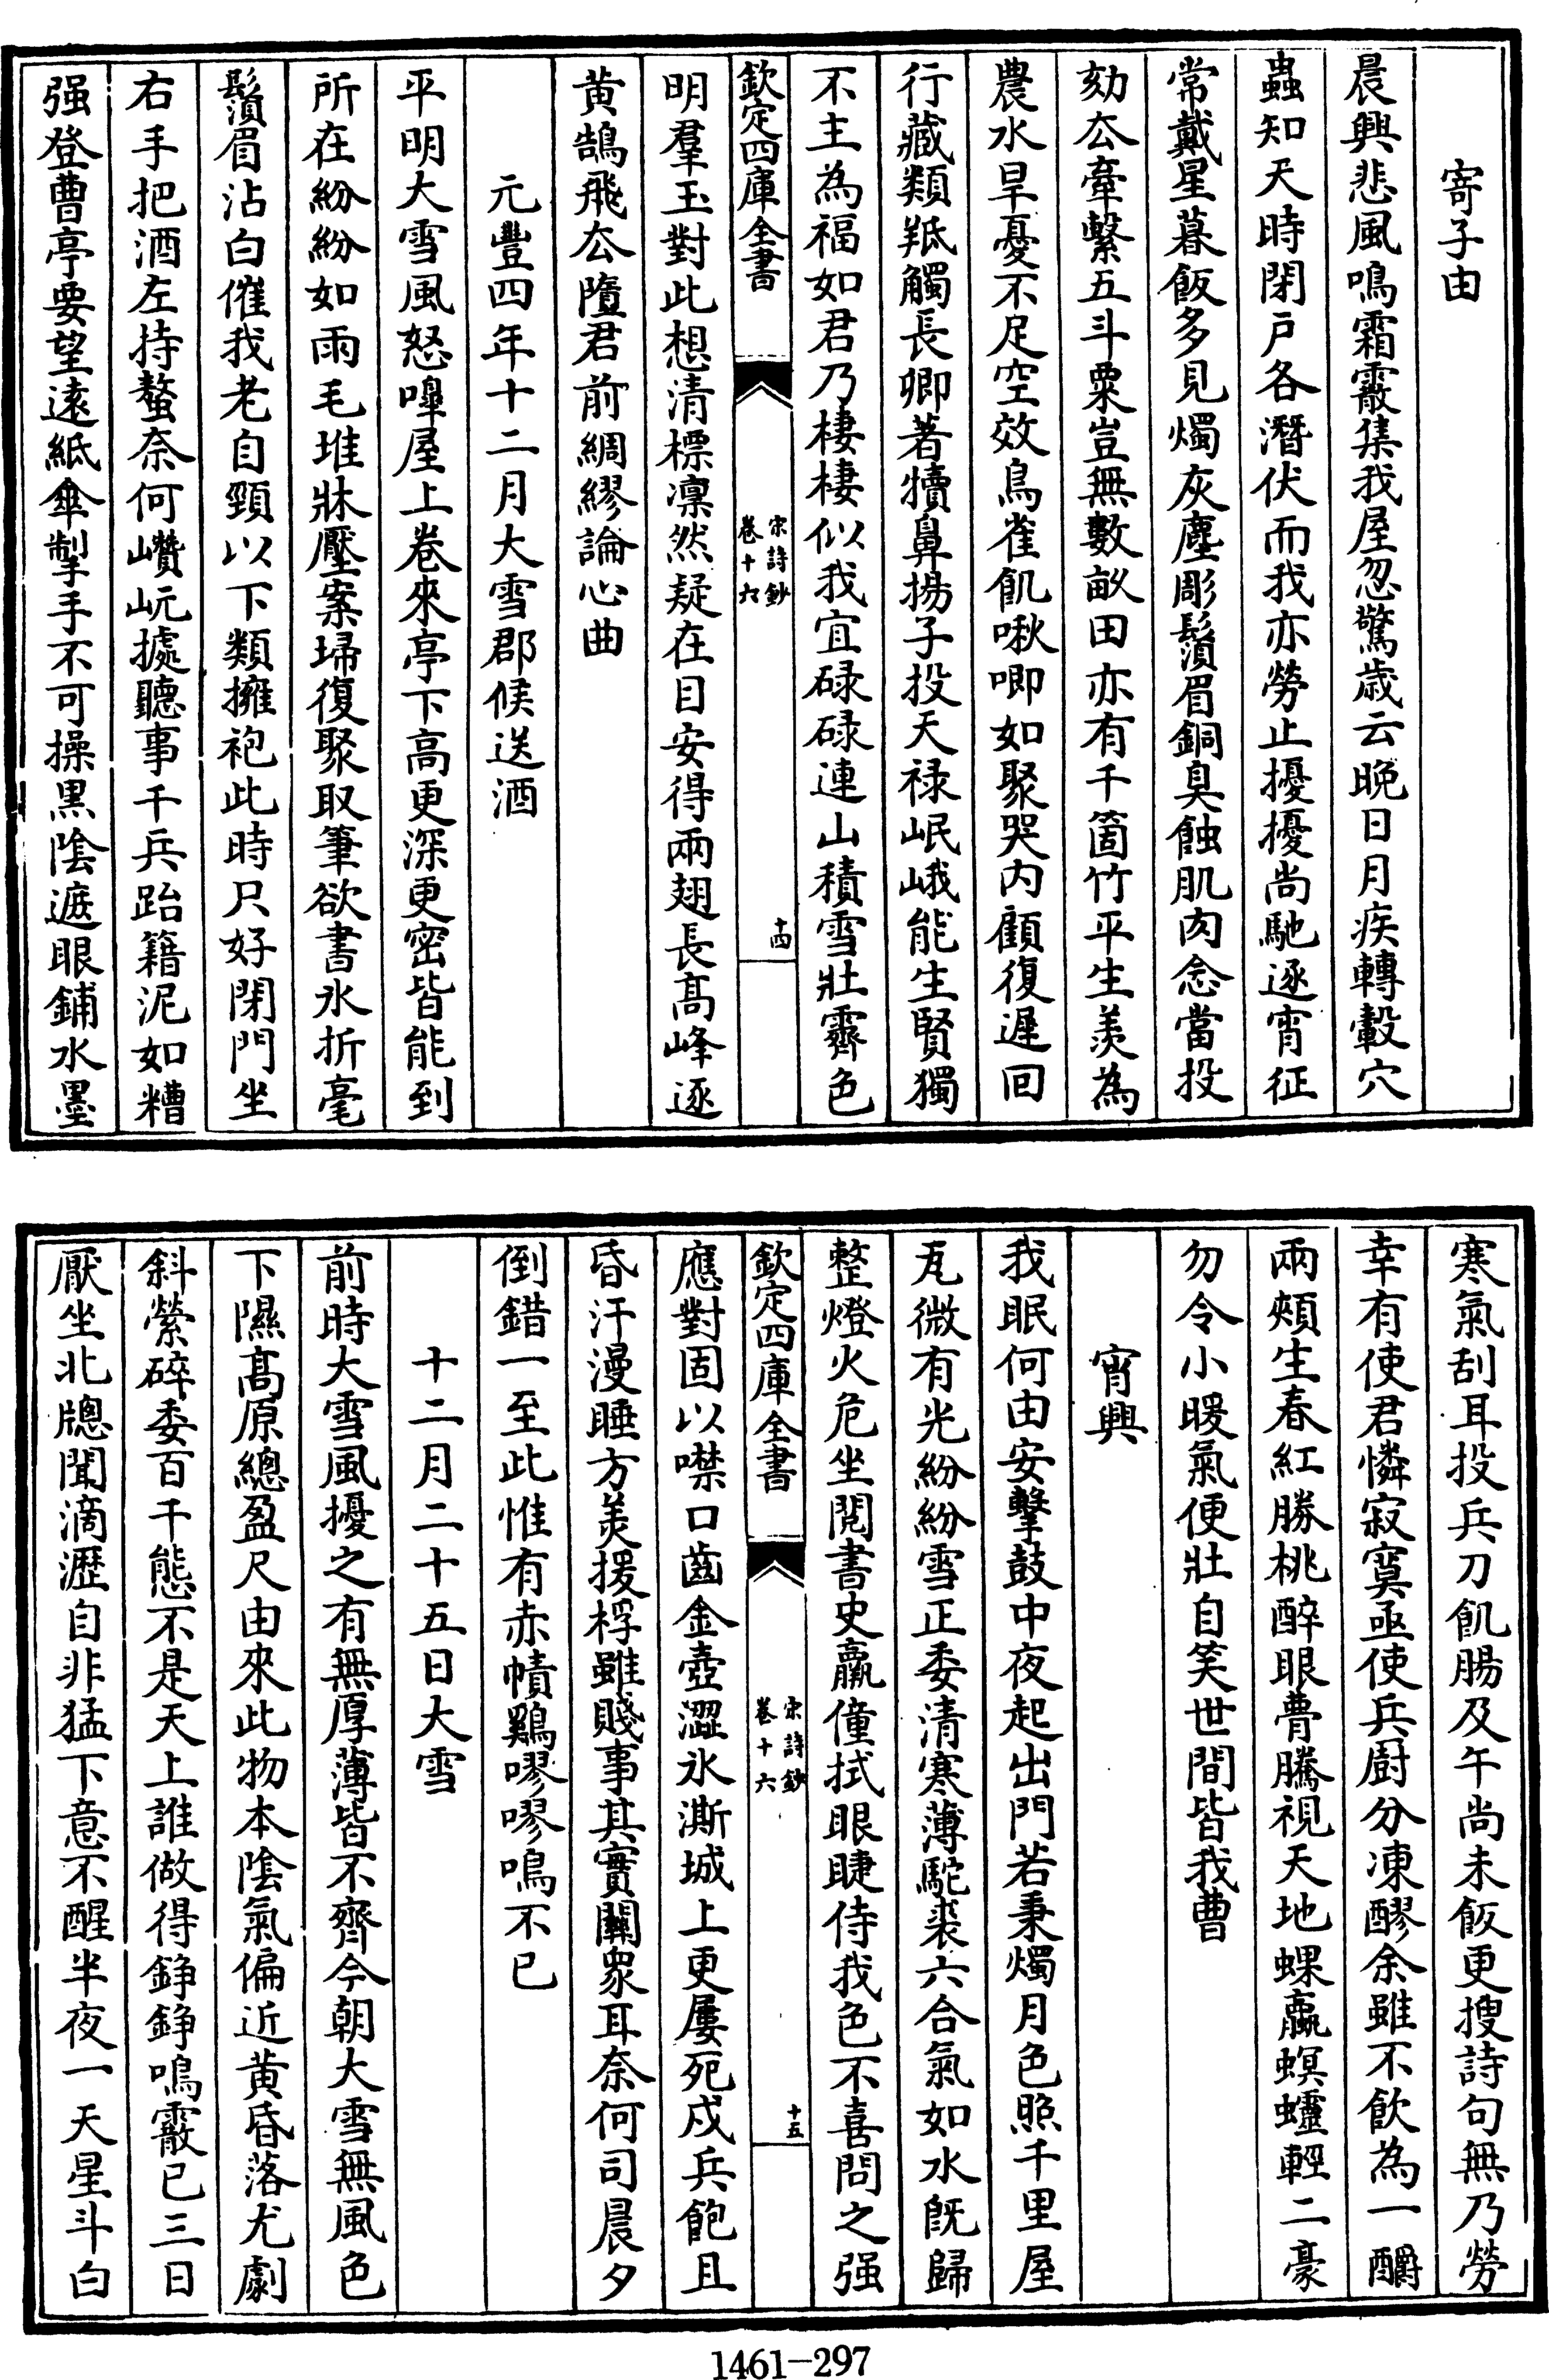 寄子由
晨興悲風鳴霜霰集我屋忽驚歲云晩日月疾轉轂穴
蟲知天時閉戶各潛伏而我亦勞止擾擾尚馳逐宵征
常戴星暮飯多見燭灰塵彫鬚眉銅臭蝕肌肉念當投
劾厺牽繫五斗粟豈無數畝田亦有千箇竹平生羨為
農水旱憂不足空效鳥雀飢啾唧如聚哭内顧復遲回
行藏類羝觸長卿著犢鼻揚子投天禄岷峨能生賢獨
不主為福如君乃棲棲似我宜碌碌連山積雪壯霽色
欽定四庫全書
宋詩鈔
卷十六
十四
明羣玉對此想清標凛然疑在目安得兩翅長髙峰逐
黄鵠飛厺墮君前綢繆論心曲
元豐四年十二月大雪郡候送酒
平明大雪風怒嘷屋上卷來亭下高更深更密皆能到
所在紛紛如雨毛堆牀壓案埽復聚取筆欲書氷折毫
鬚眉沾白催我老自頸以下類擁袍此時只好閉門坐
右手把酒左持螯奈何巑岏據聽事千兵跆籍泥如糟
强登曹亭要望遠紙傘掣手不可操黒陰遮眼鋪水墨
寒氣刮耳投兵刀飢腸及午尚未飯更搜詩句無乃勞
幸有使君憐寂寞亟使兵厨分凍醪余雖不飲為一釂
兩頰生春紅勝桃醉眼瞢騰視天地蜾蠃螟蠦輕二豪
勿令小暖氣便壯自笑世間皆我曹
宵興
我眠何由安擊鼓中夜起出門若秉燭月色照千里屋
瓦微有光紛紛雪正委清寒薄駝裘六合氣如水旣歸
整燈火危坐閲書史羸僮拭眼睫侍我色不喜問之强
欽定四庫全書
宋詩鈔
卷十六
十五
應對固以噤口齒金壺澀氷澌城上更屢死戍兵飽且
昏汗漫睡方美援桴雖賤事其實關衆耳奈何司晨夕
倒錯一至此惟有赤幘鷄嘐嘐鳴不已
十二月二十五日大雪
前時大雪風擾之有無厚薄皆不齊今朝大雪無風色
下隰髙原總盈尺由來此物本陰氣偏近黄昏落尤劇
斜縈碎委百千態不是天上誰做得錚錚鳴霰已三日
厭坐北牎聞滴瀝自非猛下意不醒半夜一天星斗白
1461-297